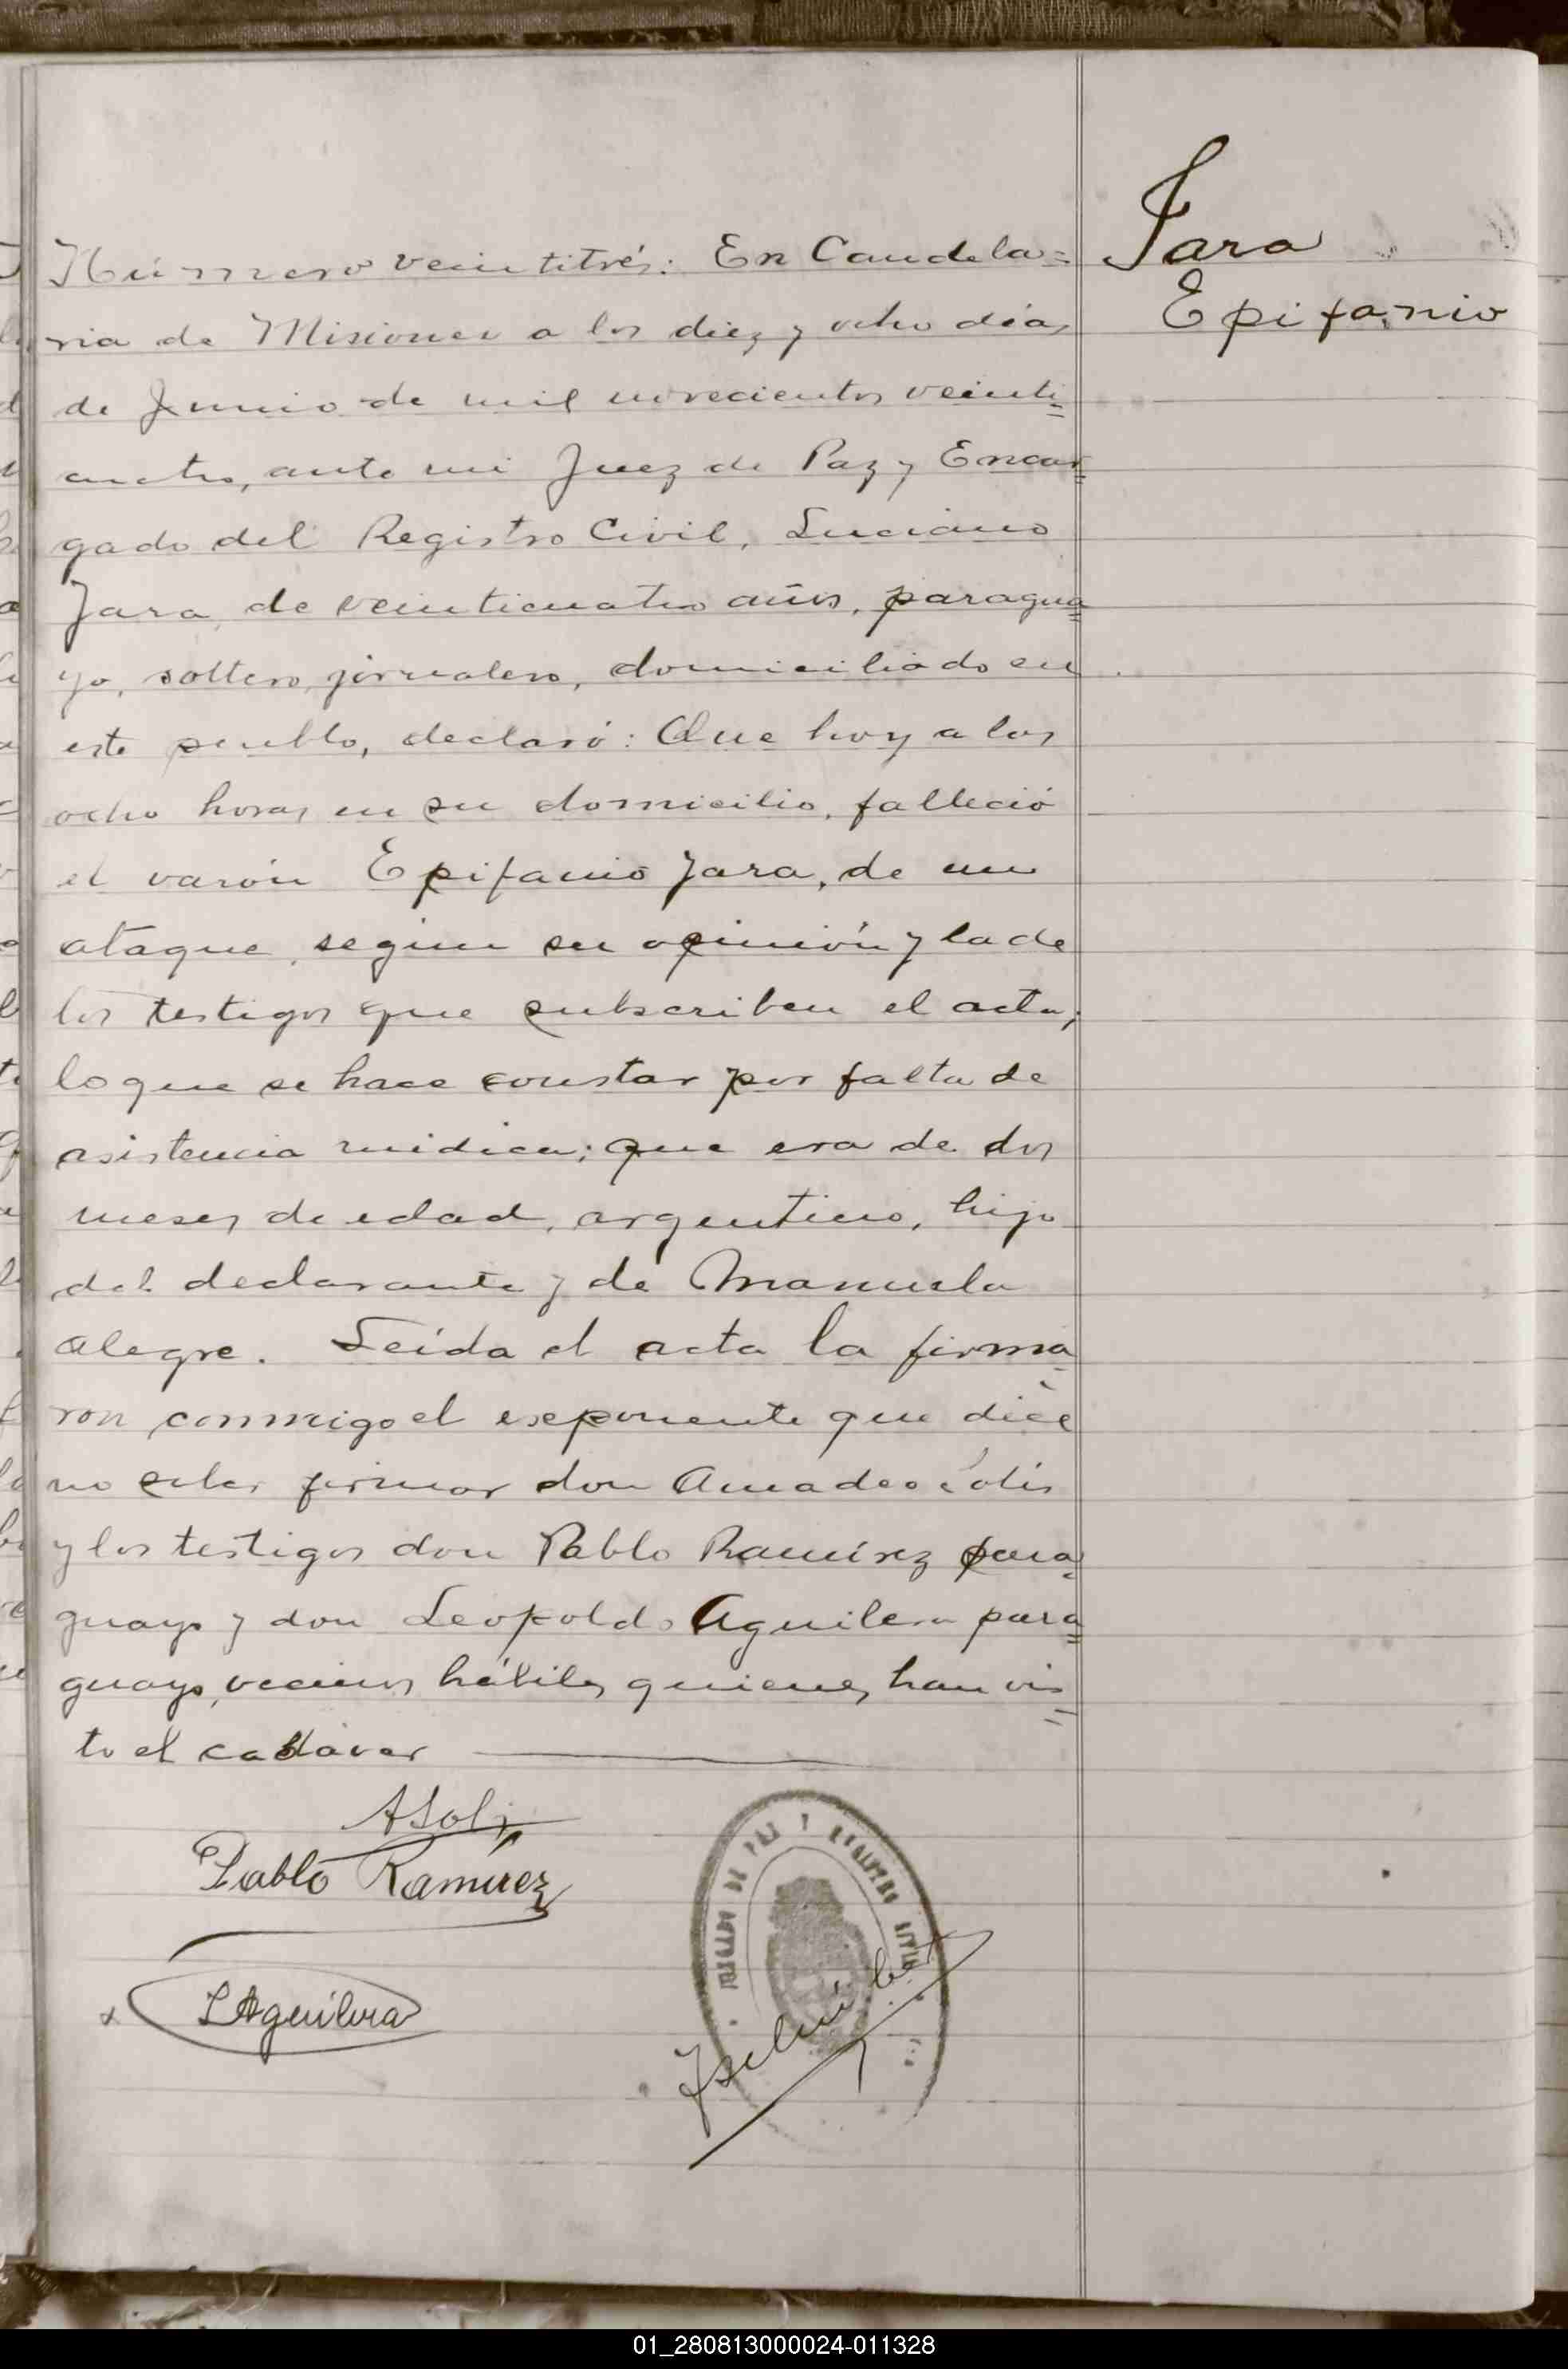 Jara
Epifanio
Número veintitrés: En Candela=
ria de Misiones a los diez y ocho días
de Junio de mil novecientos veinti=
cuatro, ante mi Juez de Paz y Encar=
gado del Registro Civil, Luciano
Jara, de veinticuatro años, paragua=
yo, soltero, jornalero, domiciliado en
este pueblo, declaró: Que hoy a las
ocho horas en su domicilio, falleció
el varón Epifanio Jara, de un
ataque, según su opinión y la de
los testigos que subscriben el acta,
lo que se hace constar por falta de
asistencia médica; que era de dos
meses de edad, argentino, hijo
del declarante y de Manuela
Alegre. Leída el acta la firma=
ron conmigo el exponente que dice
no saber firmar don Amadeo Solis
y los testigos don Pablo Ramírez para=
guayo y don Leopoldo Aguilera para=
guayo, vecinos hábiles quienes han vis=
to el cadáver
ASolis
Pablo Ramírez
LAguilera
JUZGADO DE PAZ Y REGISTRO CIVIL
01_280813000024-011328